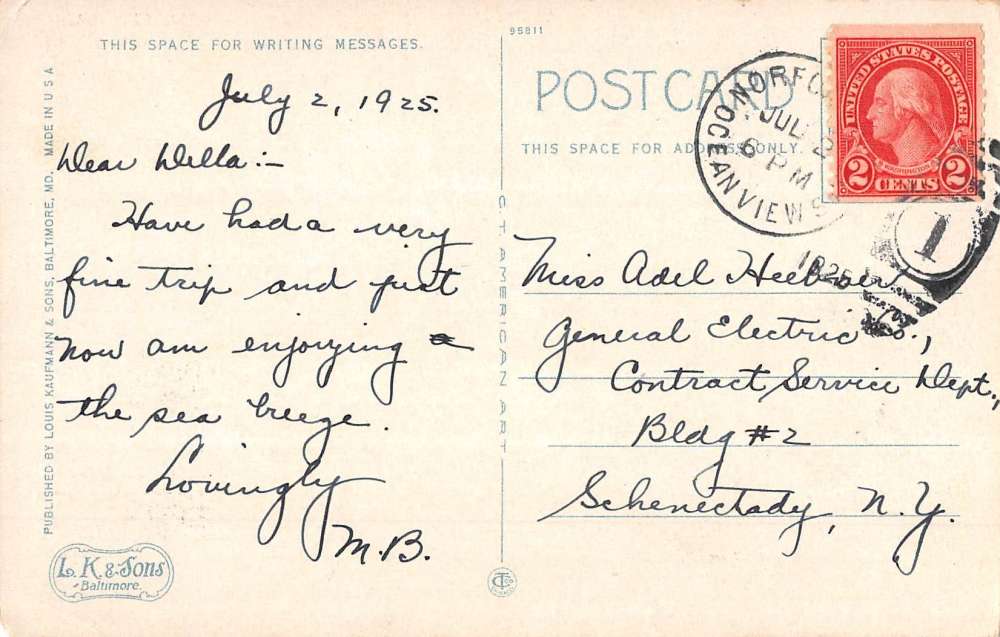 THIS SPACE FOR WRITING MESSAGES.
July 2, 1925.
Dear Della:-
Have had a very
fine trip and just
now am enjoying
the sea breeze.
Lovingly
M.B.
PUBLISHED BY LOUIS KAUFMANN & SONS, BALTIMORE, MD. MADE IN U S A
L. K. & Sons
Baltimore.
C T AMERICAN ART
95811
POST CARD
THIS SPACE FOR ADDRESS ONLY.
NORFO
JUL 2
6 PM
OCEAN VIEW
1925
1
UNITED STATES POSTAGE
WASHINGTON
2 CENTS 2
Miss Adel
General Electric Co.,
Contract Service Dept.,
Bldg #2
Schenectady, N.Y.